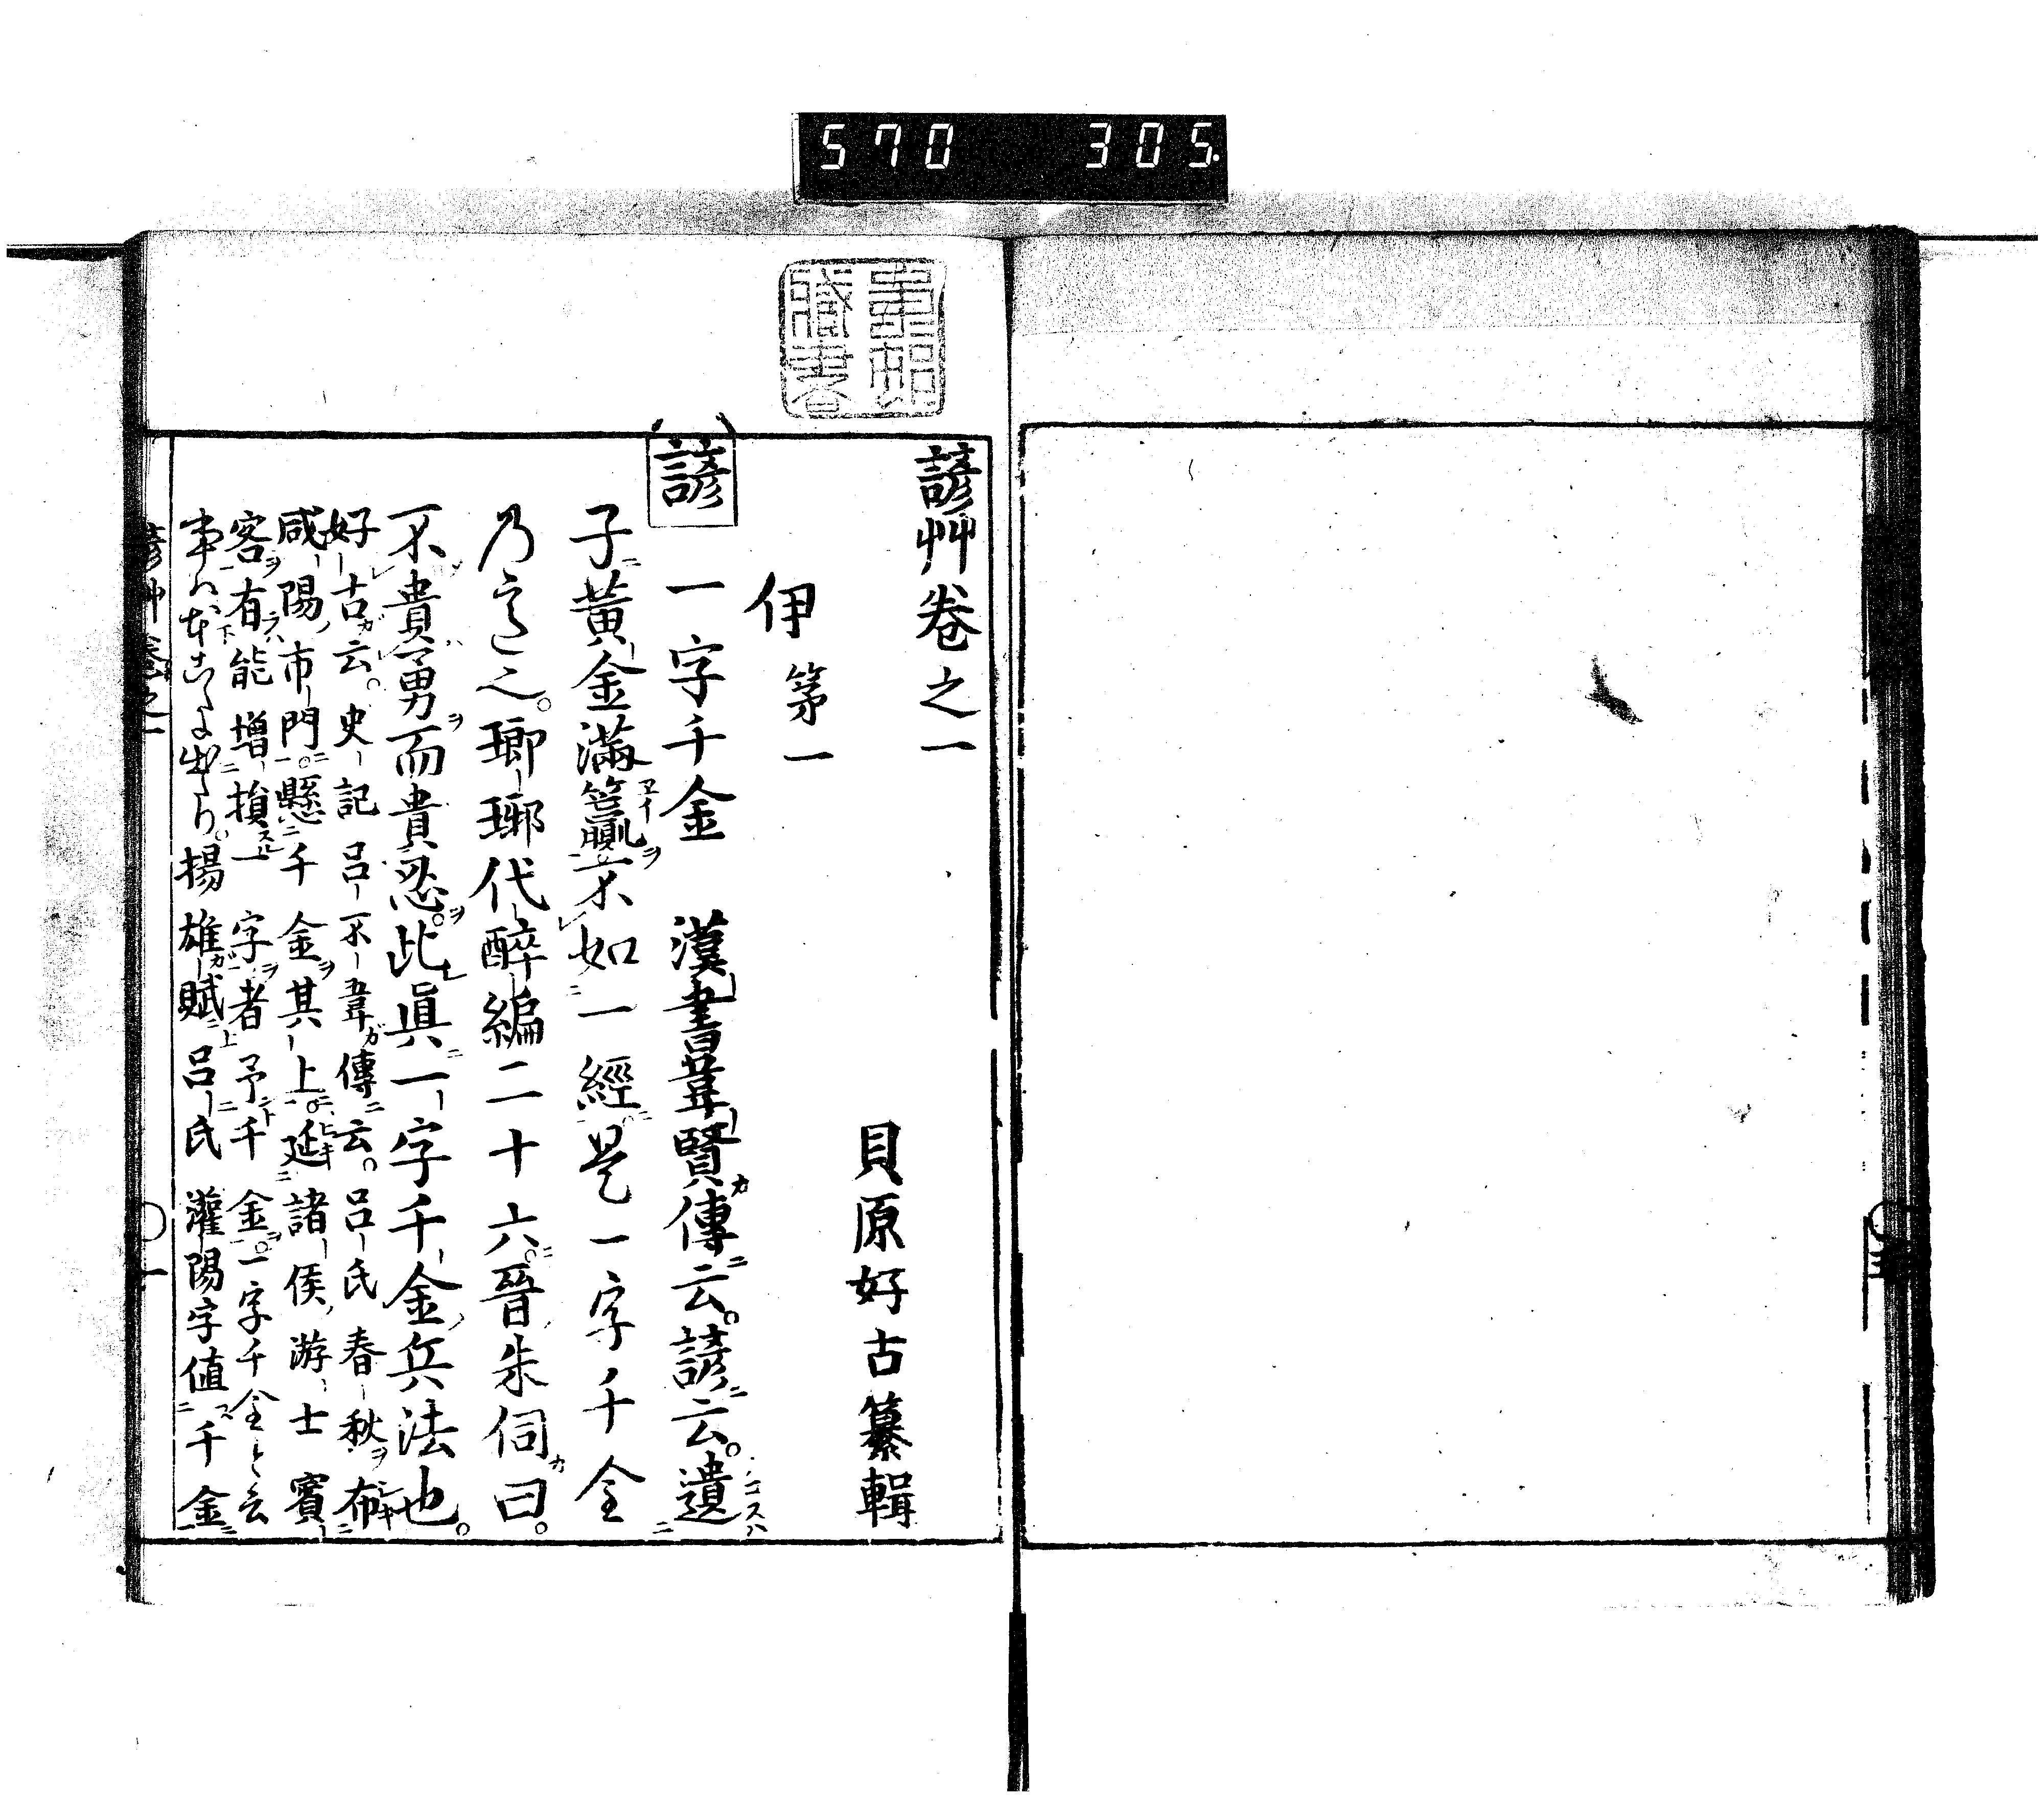 570 305
諺艸巻之一
貝原好古纂輯
伊第一
諺 一字千金 漢書韋賢傳ニ云。諺ニ云。遺
子黃金滿籯不如一經是一字千金
乃 之。瑯琊代醉編二十六。晉朱伺曰。
不貴勇而貴忍。此眞一字千金兵法也。
好古云。史記呂不韋傳云。呂氏春秋布
咸陽市門。懸千金其上。延諸侯游士賓
客有能增損一字者予千金。一字千金と云
事ハ本こゝより出たり。揚雄賦呂氏灌陽字値千金
諺艸巻之一 一